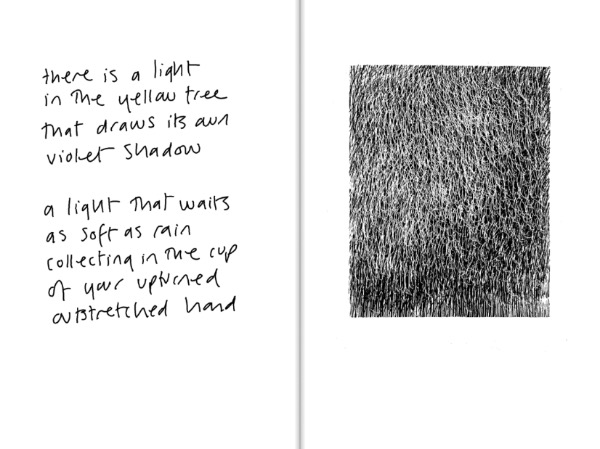 there is a light
in the yellow tree
that draws its own
violet shadow
a light that waits
as soft as rain
collecting in the cup
of your upturned
outstretched hand